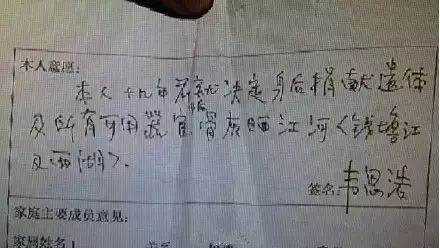 本人意愿:
本人十九年前就决定身后捐献遗体
及所有可用器官骨灰洒江河《钱塘江
及西湖》.
签名: 韦思浩
家庭主要成员意见:
家属姓名